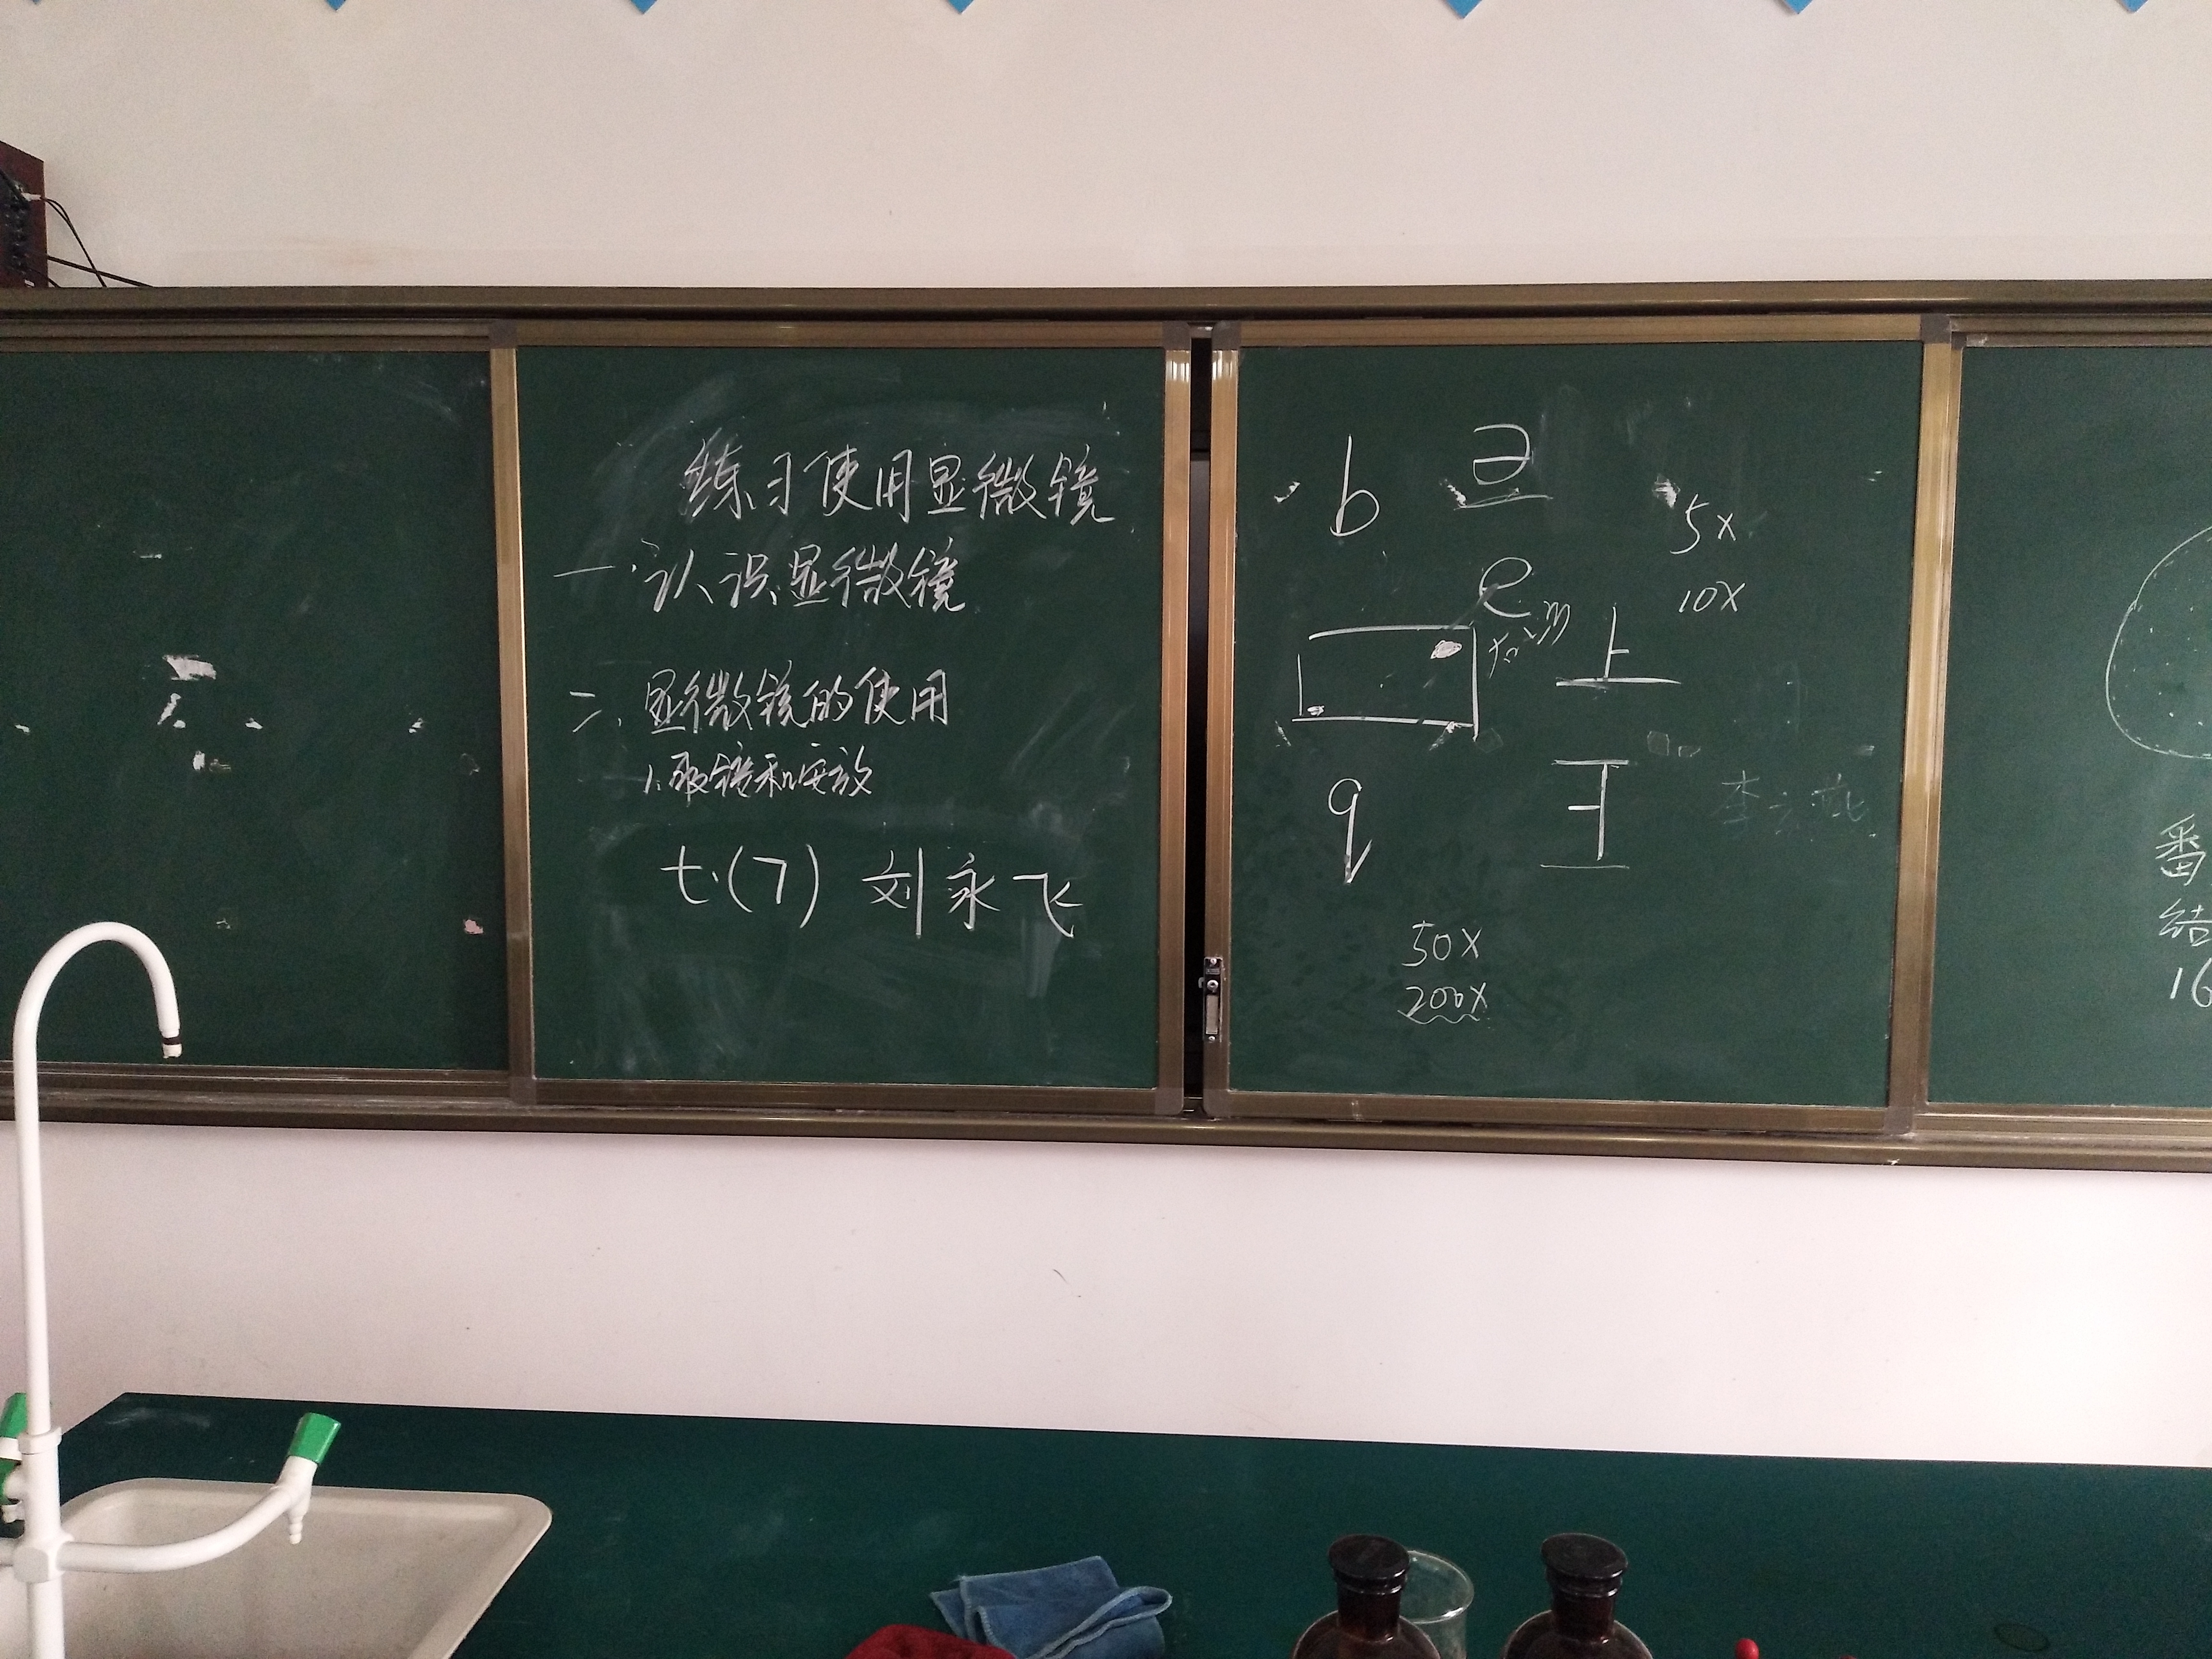 练习使用显微镜
一.认识显微镜
二、显微镜的使用
1.取镜和安放
七.(7) 刘永飞
b
e
5x
10x
上
q
50x
200x
番
结
16